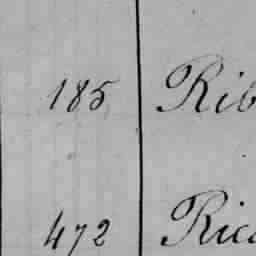 185 Rib
472 Rica